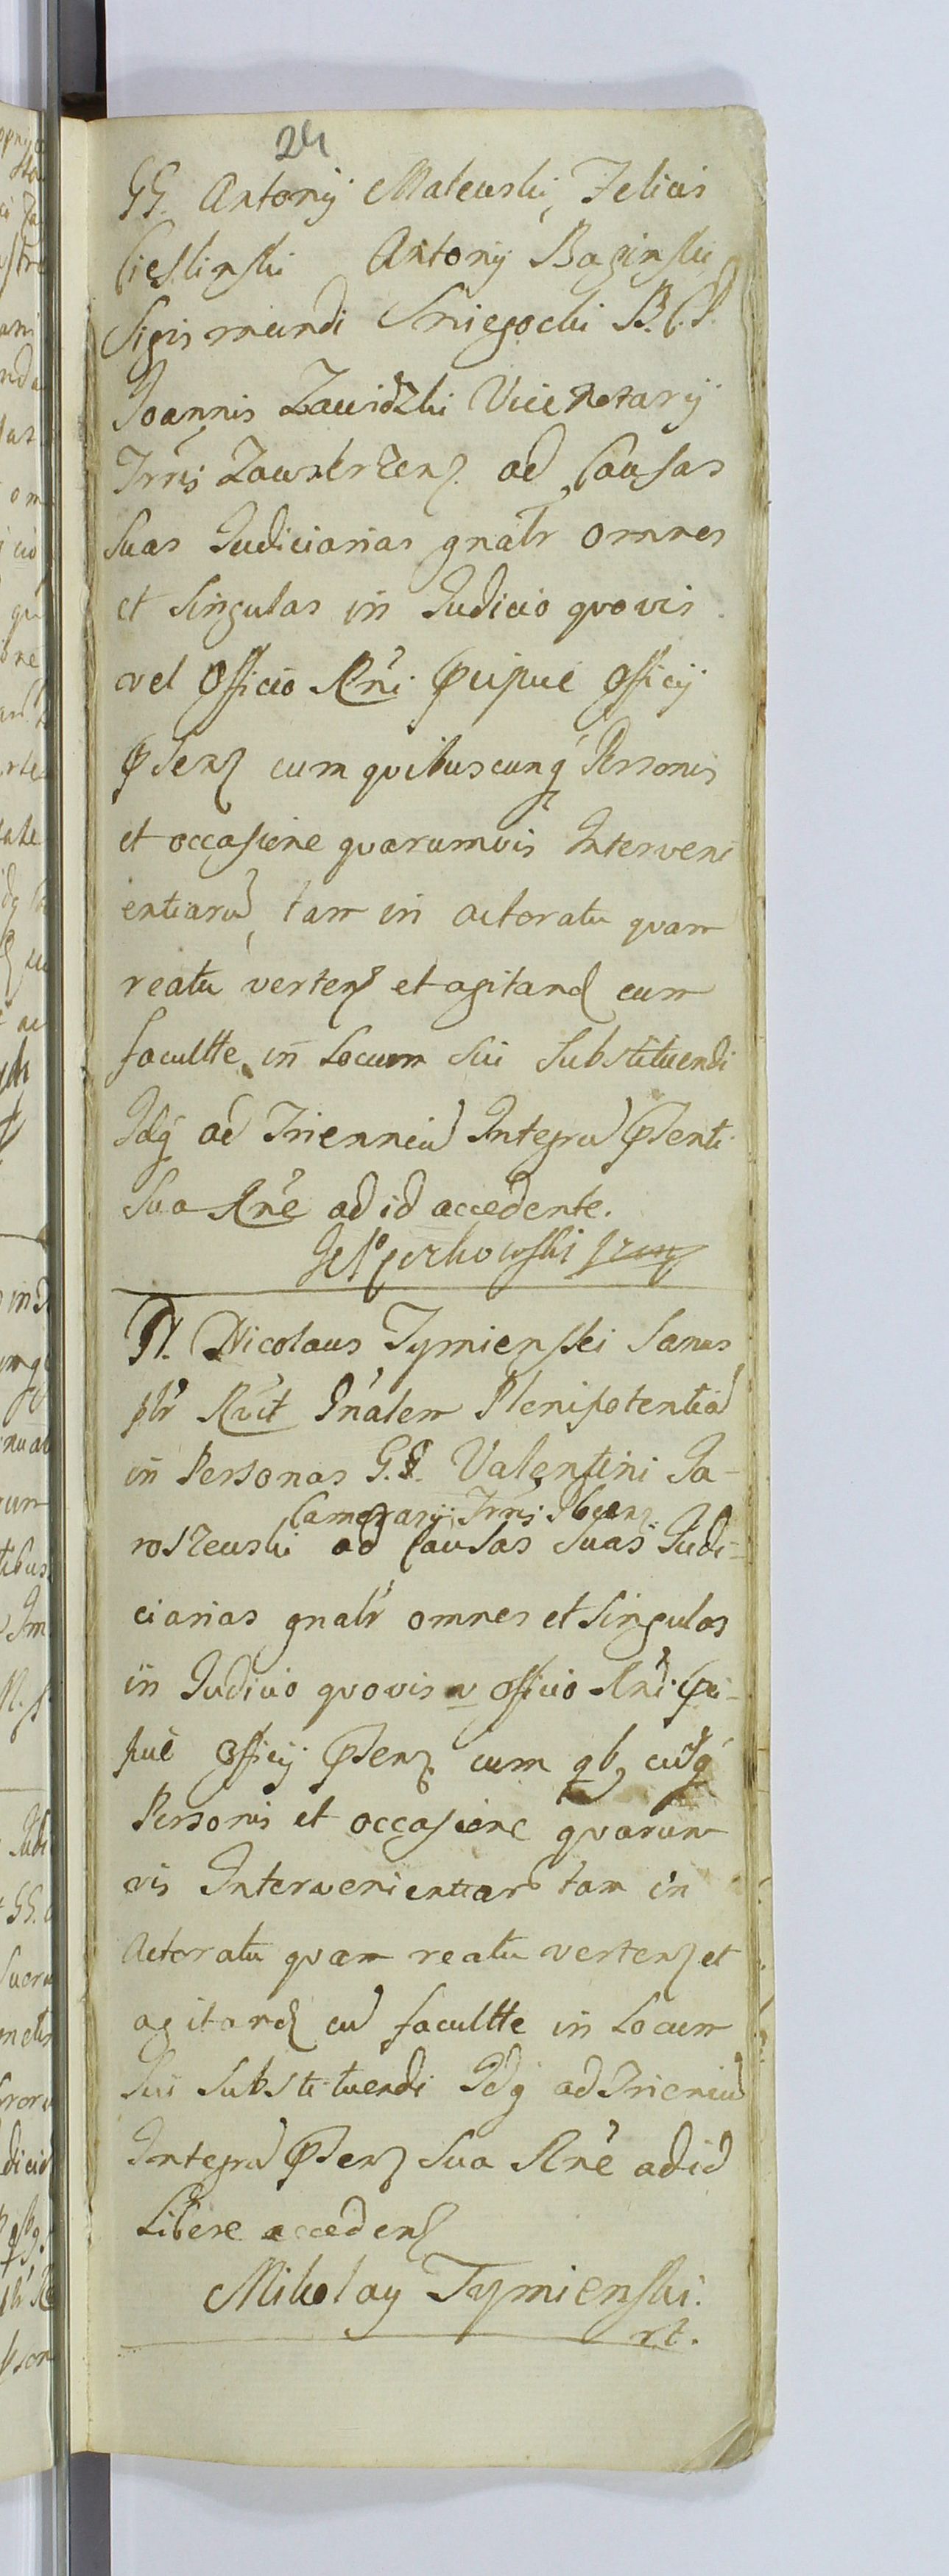 24
GG. Antonij Malewski, Felicis
Cieslinski Antonij Baginski
Sigismundi Sniegocki B.C.P.
Joannis Zawidzki Vice Notarij
Trris Zawskrzens. ad Causas
suas Judiciarias gnalr omnes
et singulas in Judicio quovis
vel Officio Rni pcipue Officij
pntens cum quibuscunq Personis
et occasione quarumvis Interveni
entiaru, tam in actoratu quam
reatu vertens et agitand cum
facultte in Locum sui substituendi
Idq ad Trienniu Integru pnti
sua Rne ad id accedente.
PL. Nicolaus Tymienski Sanus
plr Rvit Gnalem Plenipotentia
in Personas G.G. Valentini Ja-
Camerarij Trris
roszewski ad Causas suas Judi-
ciarias gnalr omnes et singulas
in Judicio quovis v Officio Rni pci-
pue Officij pntens. cum qbg cuq
Personis et occasione quarum
vis Intervenientiar tam in
Actoratu quam reatu vertens et
agitand cu facultte in Locum
sui substituendi Idq ad Trieniu
Integru pntens sua Rne ad id
Libere accedens
Mikolay Tymienski.
rt.